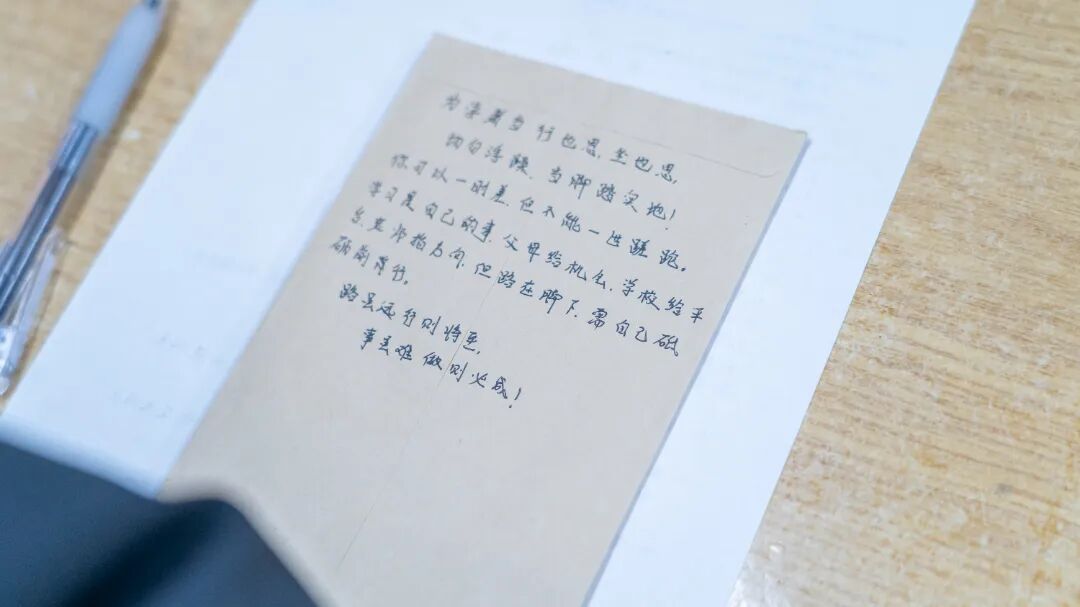 为梁者当行也思,坐也思,
切勿浮躁,当脚踏实地!
你可以一时差,但不能一世蹉跎。
学习是自己的事,父母给机会,学校给平
台,老师指方向,但路在脚下,需自己砥
砺前行。
路虽远行则将至,
事虽难做则必成!